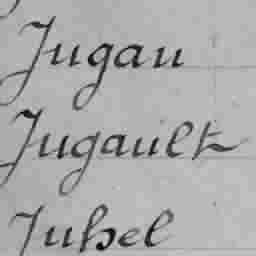 Jugau
Jugault
Juhel